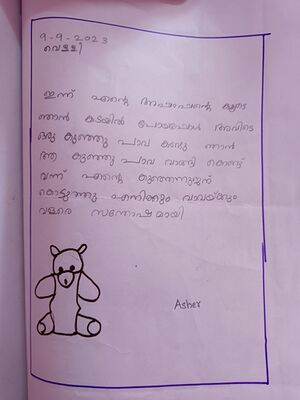 9-9-2023
വെള്ളി
ഇന്ന് എന്റെ അപ്പാപ്പന്റെ കൂടെ
ഞാൻ കടയിൽ പോയപ്പോൾ അവിടെ
ഒരു കുഞ്ഞു പാവ കണ്ടു ഞാൻ
ആ കുഞ്ഞു പാവ വാങ്ങി കൊണ്ട്
വന്ന് എന്റെ കുഞ്ഞനുജന്
കൊടുത്തു എനിക്കും വാവയ്ക്കും
വളരെ സന്തോഷമായി
Asher